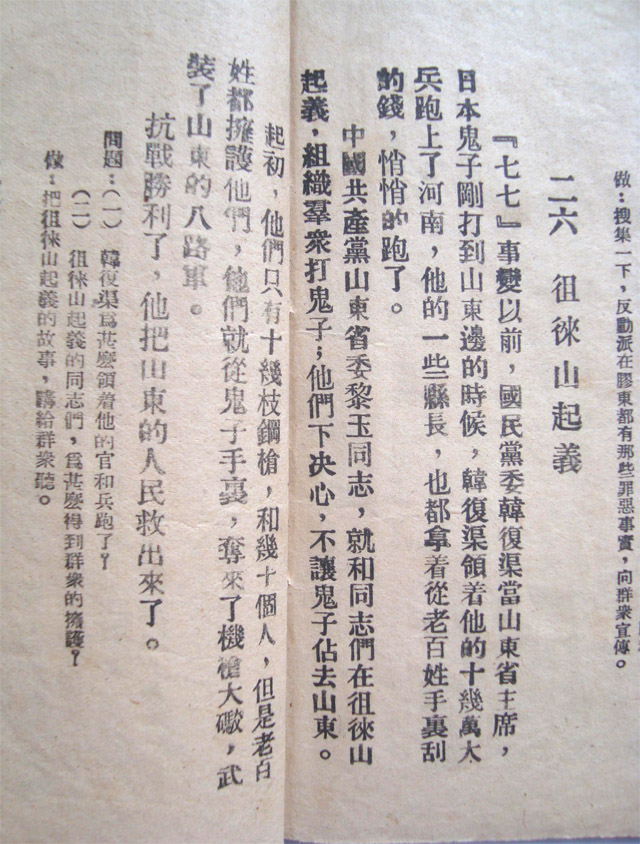 做：搜集一下，反動派在膠東都有那些罪惡事實，向群衆宣傳。
二六　徂徠山起義
『七七』事變以前，國民黨委韓復渠當山東省主席，
日本鬼子剛打到山東邊的時候，韓復渠領着他的十幾萬大
兵跑上了河南，他的一些縣長，也都拿着從老百姓手裏刮
的錢，悄悄的跑了。
中國共產黨山東省委黎玉同志，就和同志們在徂徠山
起義，組織羣衆打鬼子；他們下决心，不讓鬼子佔去山東。
起初，他們只有十幾枝鋼槍，和幾十個人，但是老百
姓都擁護他們，他們就從鬼子手裏，奪來了機槍大礮，武
裝了山東的八路軍。
抗戰勝利了，他把山東的人民救出來了。
問題：（一）韓復渠爲甚麽領着他的官和兵跑了？
（二）徂徠山起義的同志們，爲甚麽得到群衆的擁護？
做：把徂徠山起義的故事，講給群衆聽。